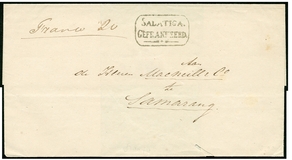 Franco 20
SALATIGA.
GEFRANKEERD.
Aan
de Heeren Macneill & Co
te
Samarang